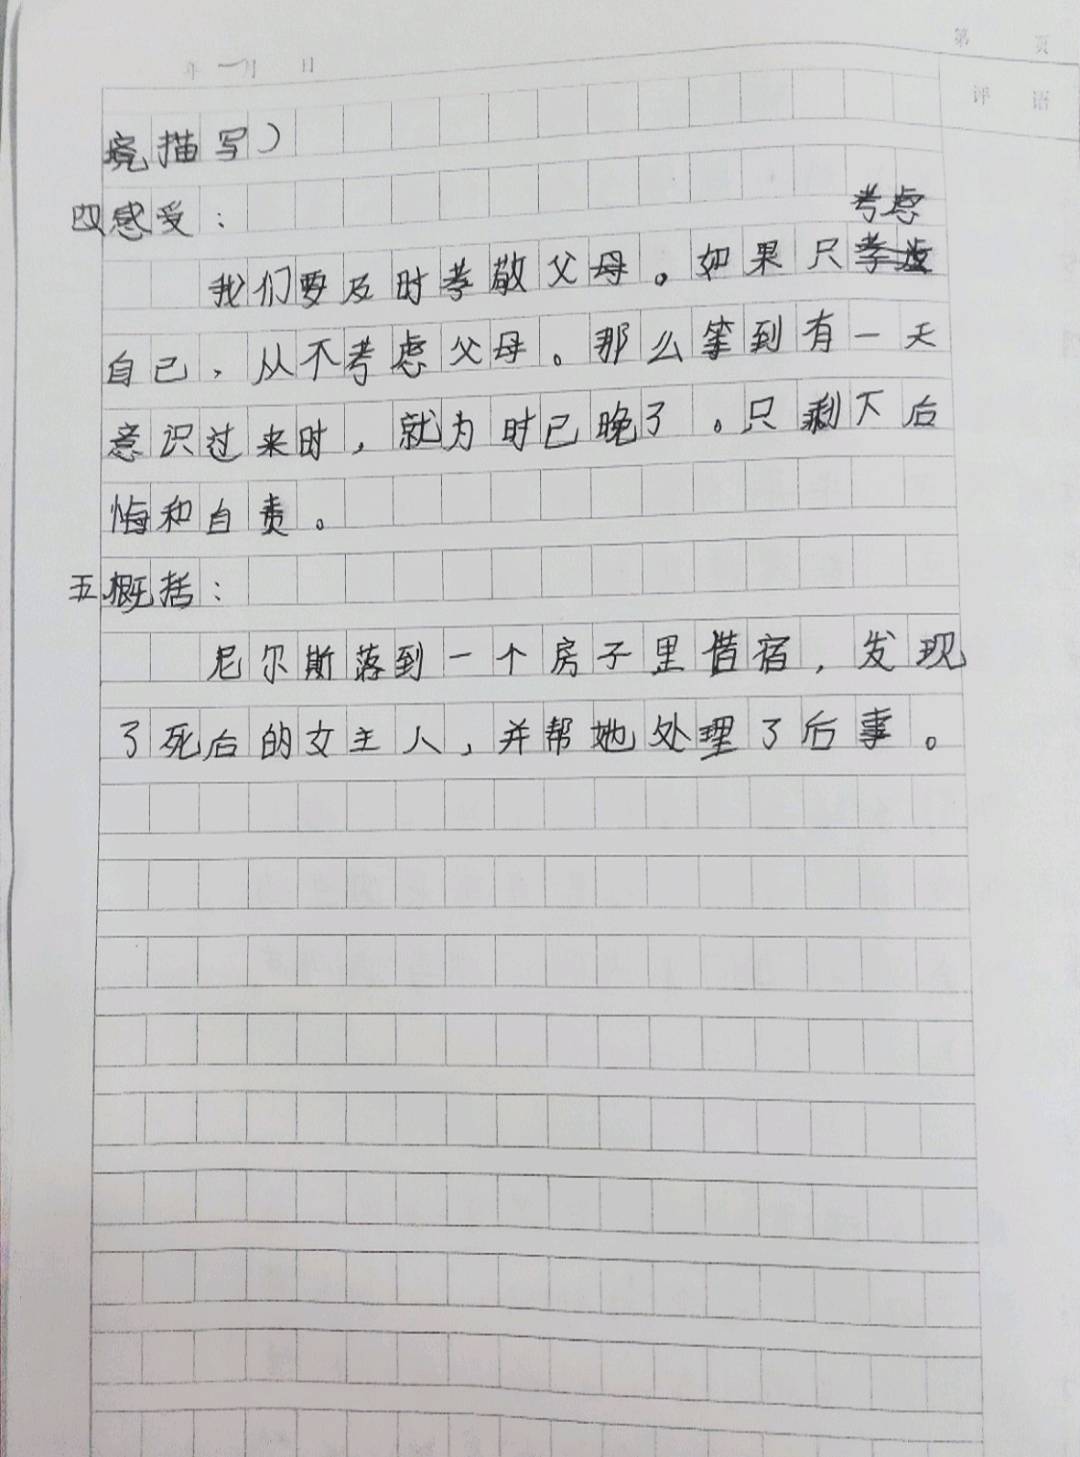 第 页
年 一月 日
评 语
境描写）
四感受：
考虑
我们要及时孝敬父母。如果只
自己，从不考虑父母。那么等到有一天
意识过来时，就为时已晚了。只剩下后
悔和自责。
五概括：
尼尔斯落到一个房子里借宿，发现
了死后的女主人，并帮她处理了后事。